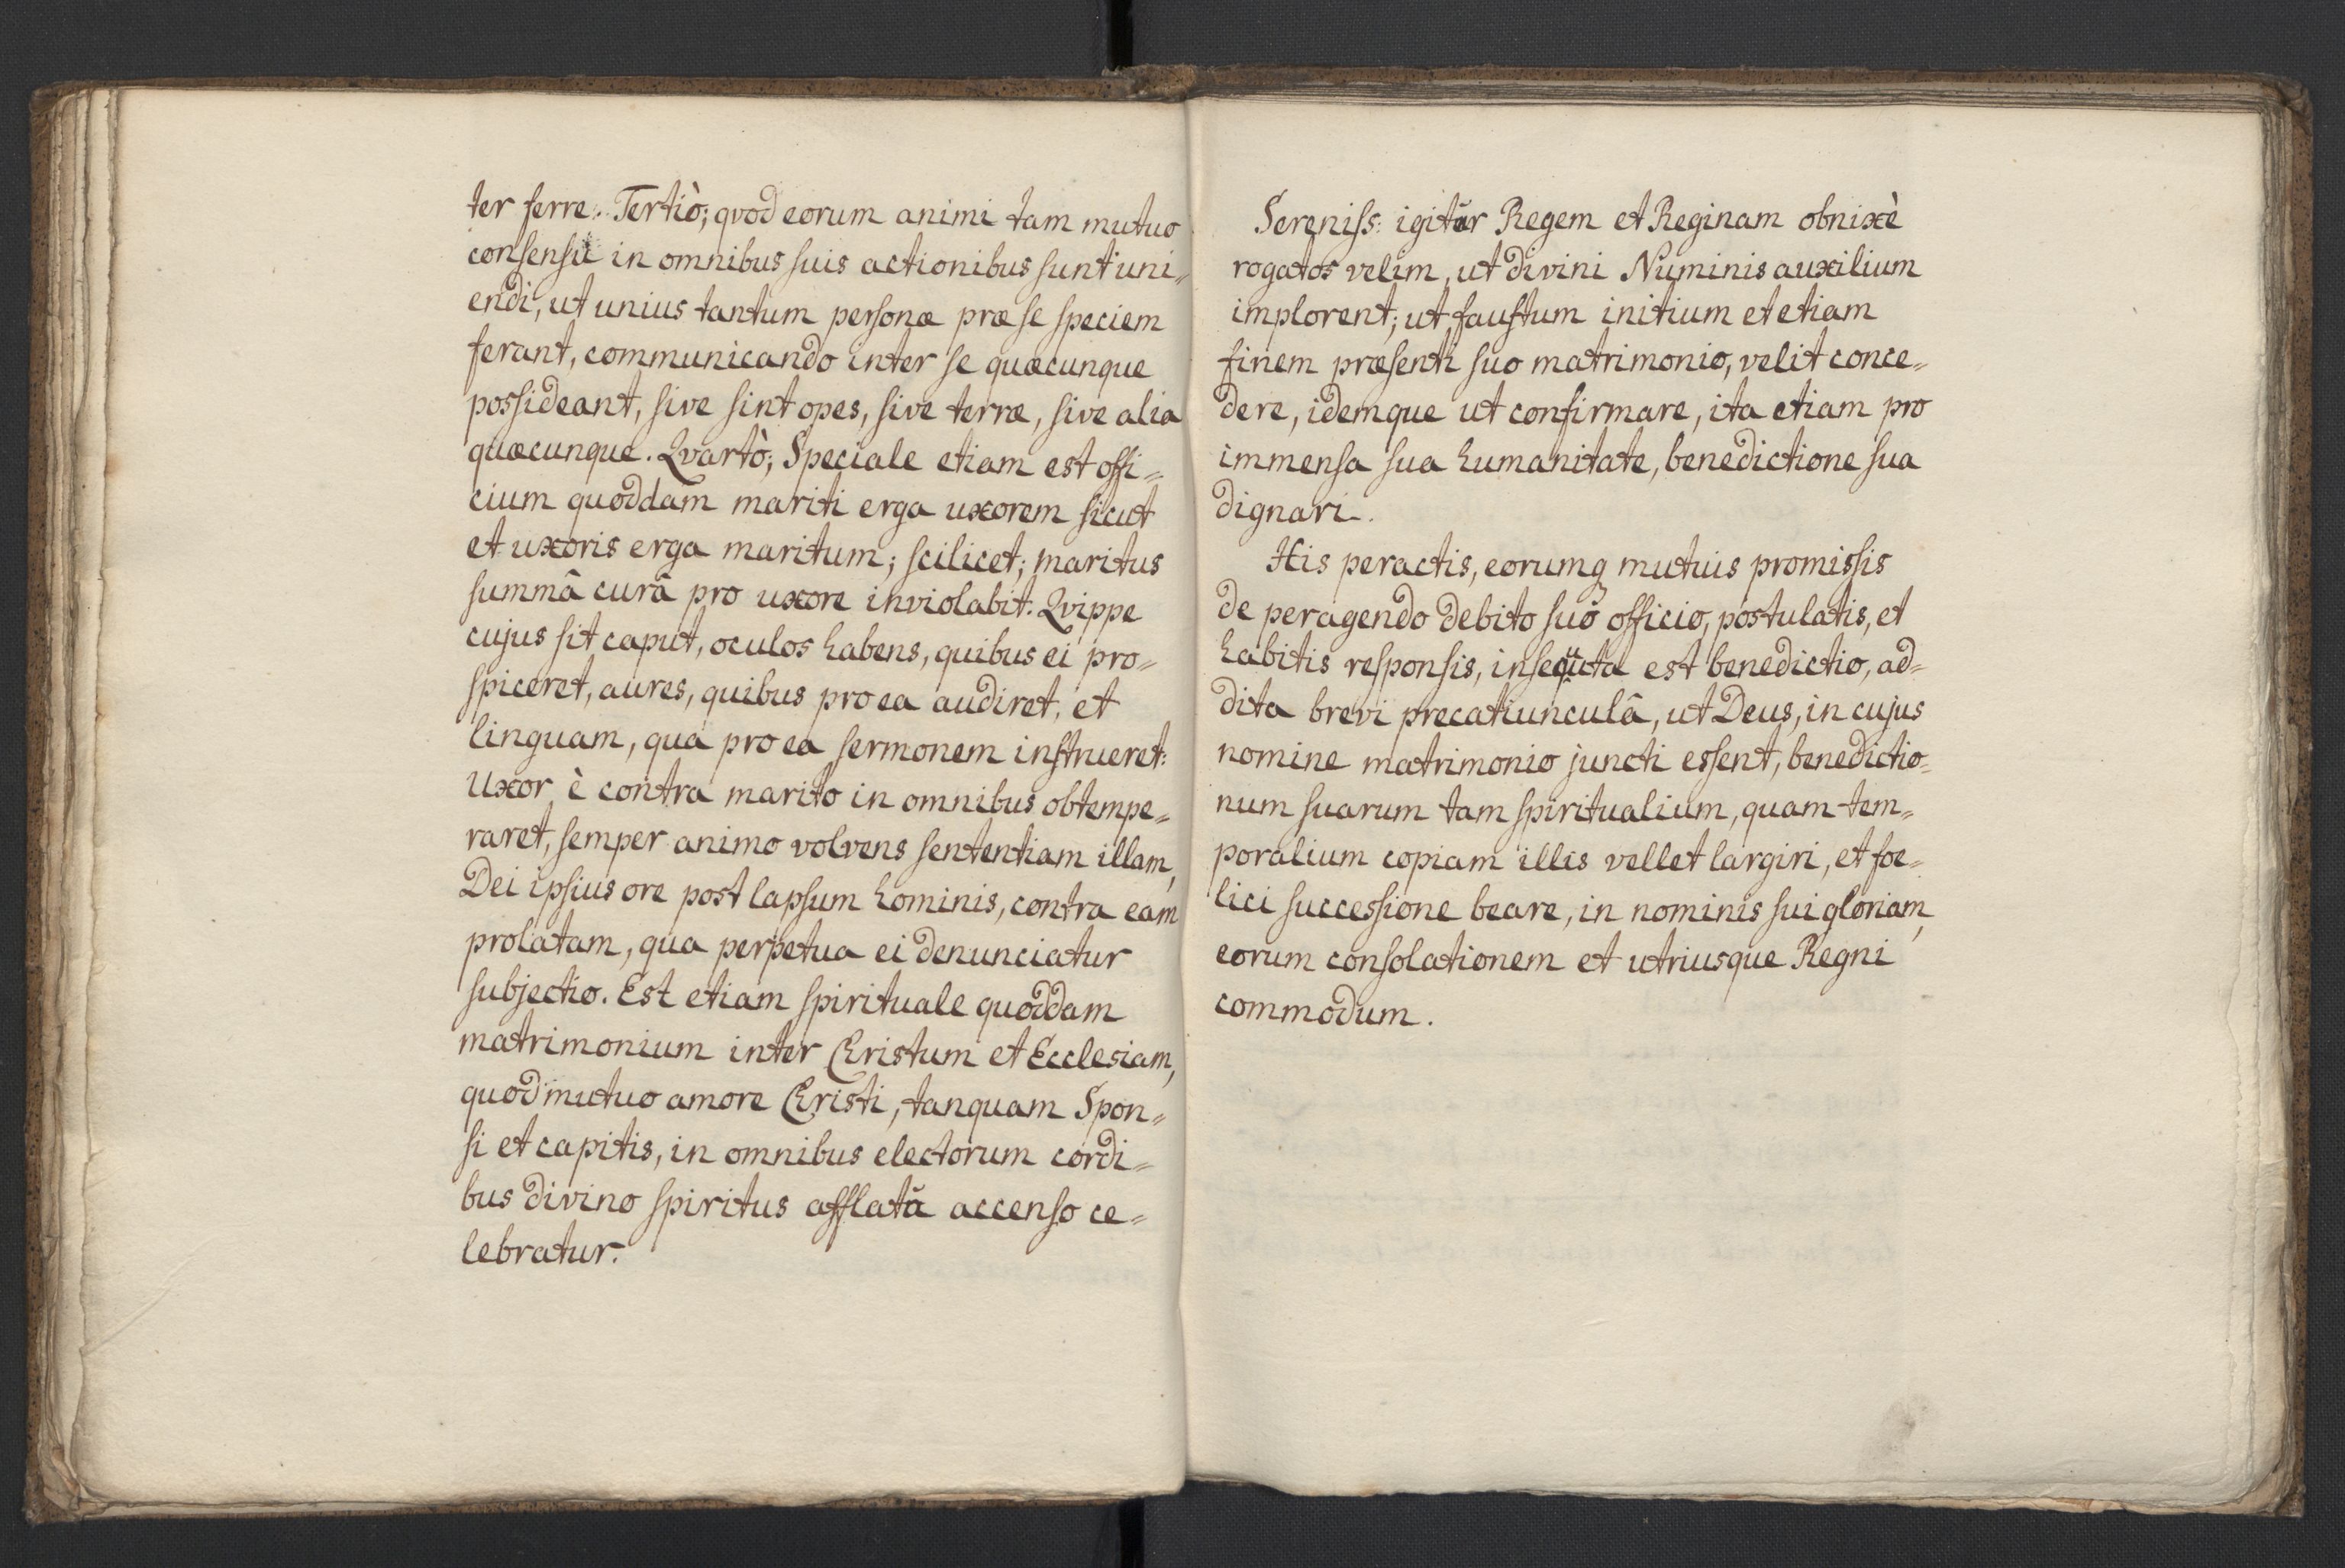 ter ferre. Tertiò; qvod eorum animi tam mutuo
consensu in omnibus suis actionibus sunt uni=
endi, ut unius tantum personæ præ se speciem
ferant, communicando inter se quæcunque
possideant, sive sint opes, sive terræ, sive alia
quæcunque. Qvartò; Speciale etiam est offi=
cium quoddam mariti erga uxorem sicut
et uxoris erga maritum; scilicet; maritus
summâ curâ pro uxore inviolabit. Qvippe
cujus sit caput, oculos habens, quibus ei pro=
spiceret, aures, quibus pro ea audiret, et
linguam, qua pro ea sermonem instrueret:
Uxor è contra marito in omnibus obtempe=
raret, semper animo volvens sententiam illam,
Dei ipsius ore post lapsum hominis, contra eam
prolatam, qua perpetua ei denunciatur
subjectio. Est etiam spirituale quoddam
matrimonium inter Christum et Ecclesiam,
quod mutuo amore Christi, tanquam Spon=
si et capitis, in omnibus electorum cordi=
bus divino spiritus afflatu accenso ce=
lebratur.
Sereniss: igitur Regem et Reginam obnixè
rogatos velim, ut divini Numinis auxilium
implorent; ut faustum initium et etiam
finem præsenti suo matrimonio, velit conce=
dere, idemque ut confirmare, ita etiam pro
immensa sua humanitate, benedictione sua
dignari.
His peractis, eorumq mutuis promissis
de peragendo debito suo officio, postulatis, et
habitis responsis, insequta est benedictio, ad=
dita brevi precatiunculâ, ut Deus, in cujus
nomine matrimonio juncti essent, benedictio=
num suarum tam spiritualium, quam tem=
poralium copiam illis vellet largiri, et foe=
lici successione beare, in nominis sui gloriam,
eorum consolationem et utriusque Regni
commodum.